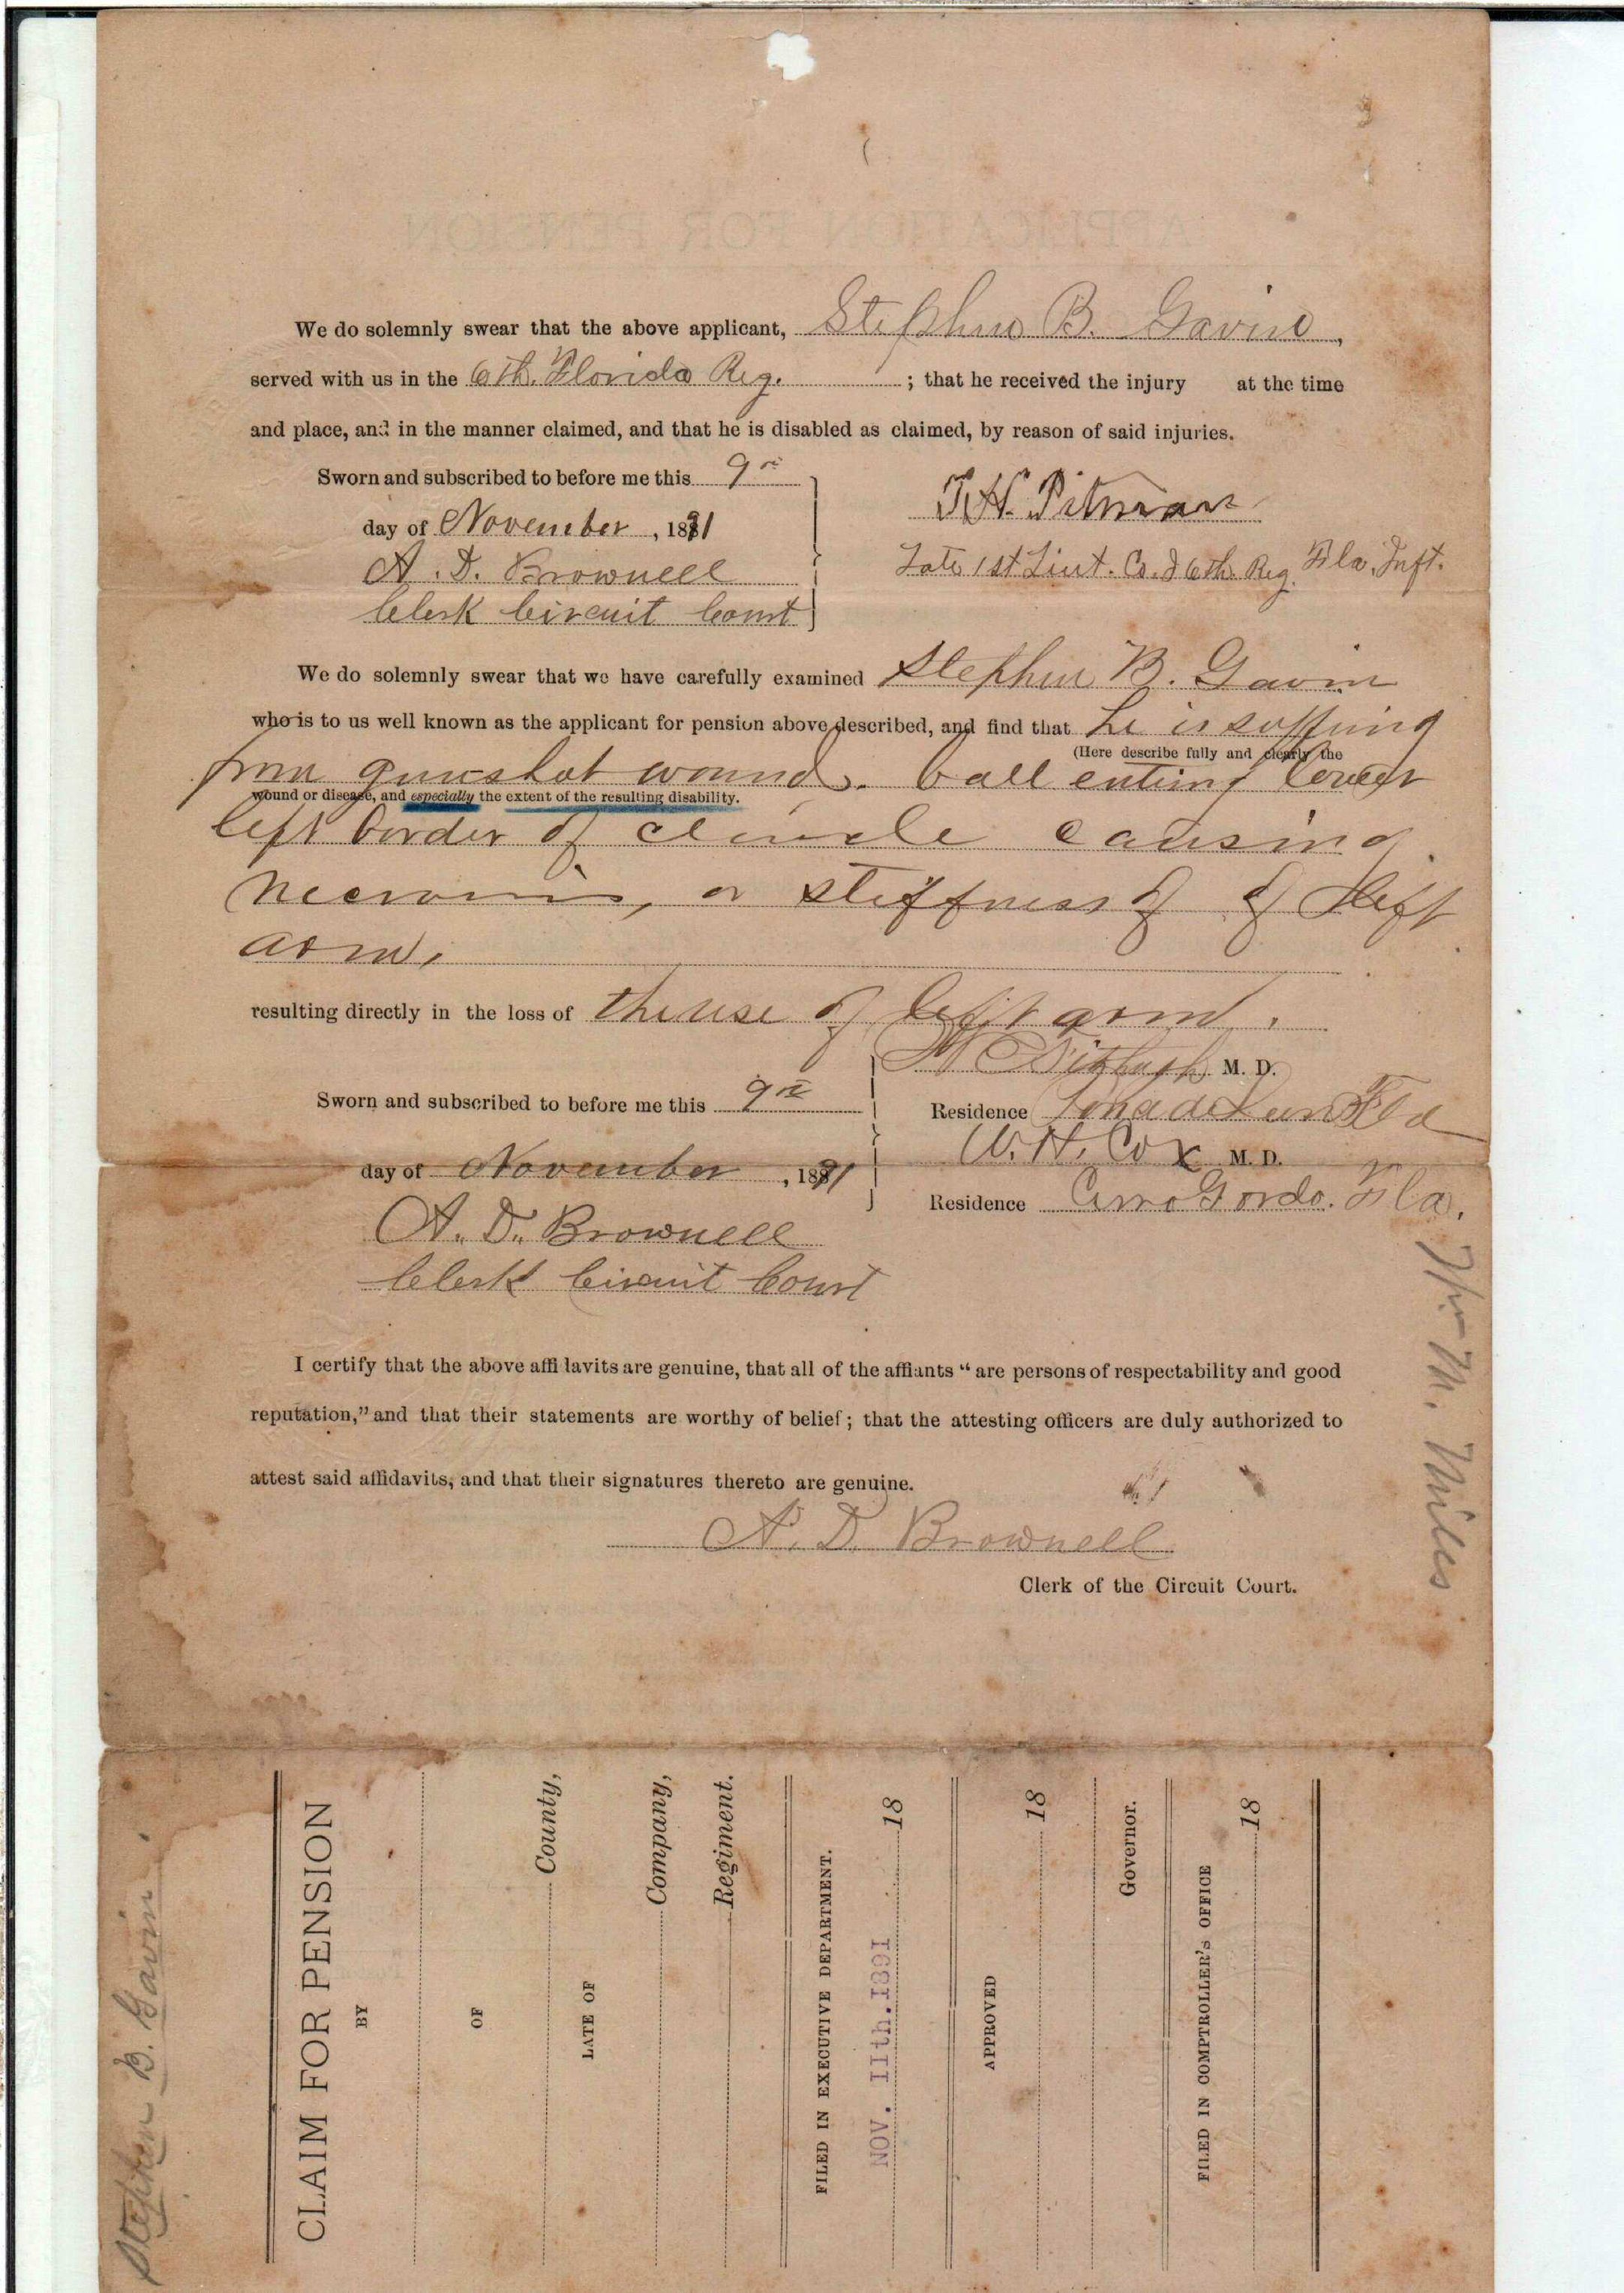 We do solemnly swear that the above applicant, Stephen B. Gavin,
served with us in the 6th. Florida Reg. ; that he received the injury at the time
and place, and in the manner claimed, and that he is disabled as claimed, by reason of said injuries.
Sworn and subscribed to before me this 9th
day of November, 1891
A. D. Brownell
Clerk Circuit Court
T. H. Pitman
Late 1st Lieut. Co. 6th Reg. Fla. Inft.
We do solemnly swear that we have carefully examined Stephen B. Gavin
who is to us well known as the applicant for pension above described, and find that he is suffring
(Here describe fully and clearly the
from gunshot wound. ball entring lower
wound or disease, and especially the extent of the resulting disability.
left border of causing
or stiffness of of left
arm.
resulting directly in the loss of the use of left arm.
Fithugh M. D.
Sworn and subscribed to before me this 9th
Residence Fla
W. H. Cox M. D.
day of November, 1891
Residence Cerro Gordo. Fla.
A. D. Brownell
Clerk Circuit Court
I certify that the above affidavits are genuine, that all of the affiants "are persons of respectability and good
reputation," and that their statements are worthy of belief; that the attesting officers are duly authorized to
attest said affidavits, and that their signatures thereto are genuine.
A. D. Brownell
Clerk of the Circuit Court.
M. Miles
Stephen B. Gavin
CLAIM FOR PENSION
BY
OF
County,
LATE OF
Company,
Regiment.
FILED IN EXECUTIVE DEPARTMENT.
NOV. 11th. 1891 18
APPROVED
18
Governor.
FILED IN COMPTROLLER'S OFFICE
18
APPLICATION FOR PENSION